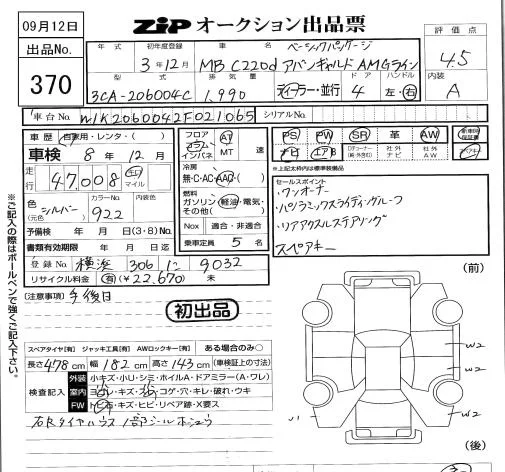 09月12日
ZIP オークション出品票
出品No.
370
年式
初年度登録
車名
3年12月
ベーシックパッケージ
MB C220d アバンギャルド AMGライン
評価点
4.5
型式
排気量
ドア
ハンドル
3CA-206004C
1,990
ディーラー・並行
4
左・右
内装
A
車台No.
W1K2060042F021065
シリアルNo.
車歴 自家用・レンタ・( )
車検 8年 12月
走行 47,008 キロ マイル
色(元色) シルバー
カラーNo. 922
内装色
予備検 年 月 日(3・8)No.
書類有効期限 年 月 日迄
登録No. 横浜 306 に 9032
リサイクル料金 有(¥22,670) 未
フロア
コラム
インパネ
AT
MT
速
冷房
無・C・AC・AAC・( )
燃料
ガソリン・軽油・電気・
その他( )
Nox 適合・非適合
乗車定員 5名
PS PW SR 革 AW 新車時保証書
ナビ エアB 社外ナビ 社外AW
※上記枠内は標準装備品
セールスポイント
・ワンオーナー
・パノラミックスライディングルーフ
・リアアクスルステアリング
スペアキー
※ご記入の際はボールペンで強くご記入下さい。
[注意事項] 午後日
初出品
(前)
スペアタイヤ[有] ジャッキ工具[有] AWロックキー[有] ある場合のみ○
長さ 478cm 幅 182cm 高さ 143cm (車検証上の寸法)
検査記入
外装 小キズ・小U・シミ・ホイルA・ドアミラー(A・ワレ)
室内 ヨゴレ・キズ・シミ・コゲ・穴・キレ・破れ・ウキ
FW トビ石・キズ・ヒビ・リペア跡・X要ス
W2
W2
W2
(後)